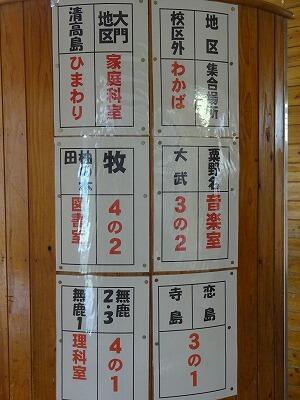 地区
集合場所
校区外
わかば
大門
地区
家庭科室
清高島
ひまわり
粟野名
音楽室
大武
3の2
牧
4の2
田
図書室
恋島
寺島
3の1
無鹿
2・3
4の1
無鹿1
理科室